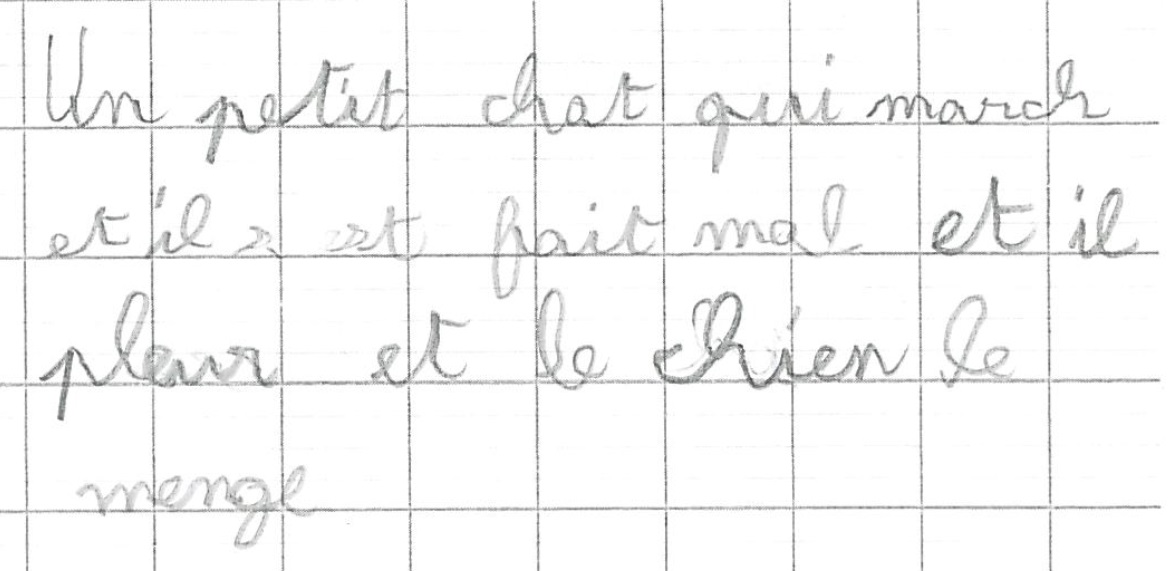 Un petit chat qui march
et il s est fait mal et il
pleur et le chien le
menge